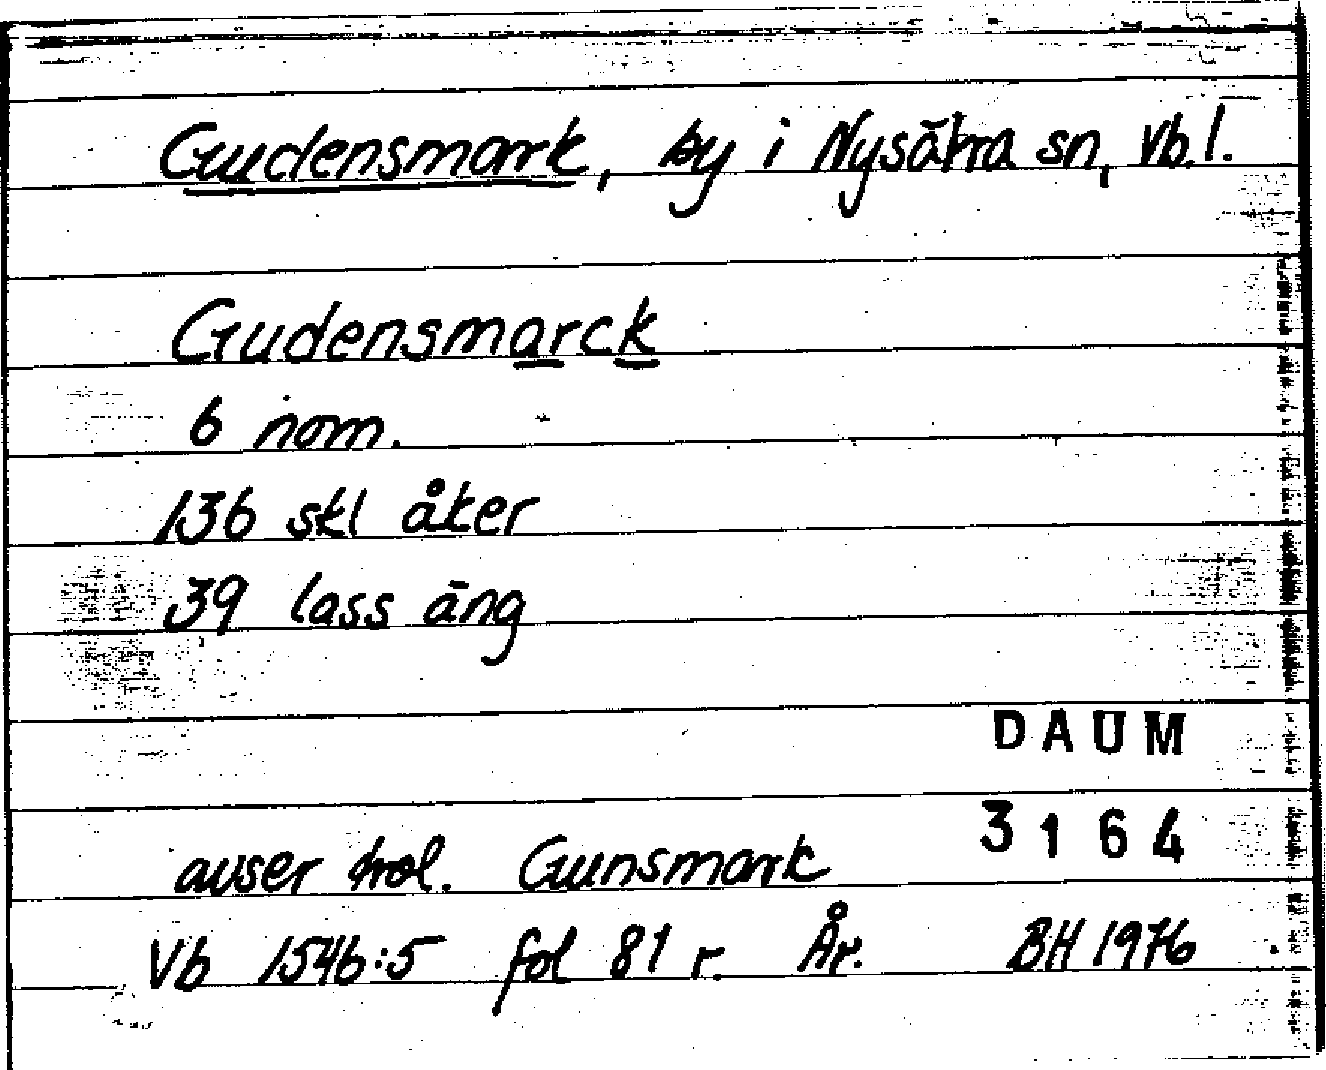 Gudensmark, by i Nysätra sn, Vb.l.
Gudensmarck
6 nom.
136 skl åker
39 lass äng
DAUM
3164
avser trol. Gunsmark
Vb 1546:5 fol 81 r. År. BH 1976